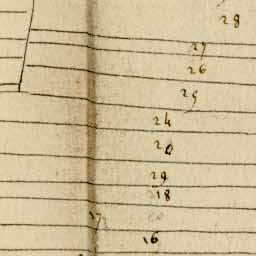 28
27
26
25
24
20
29
18
17
16